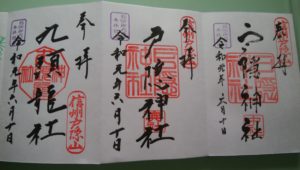 奉拝
戸隠神社
令和元年六月十日
奉拝
戸隠神社
令和元年六月十日
奉拝
信州戸隠山
九頭龍社
令和元年六月十日